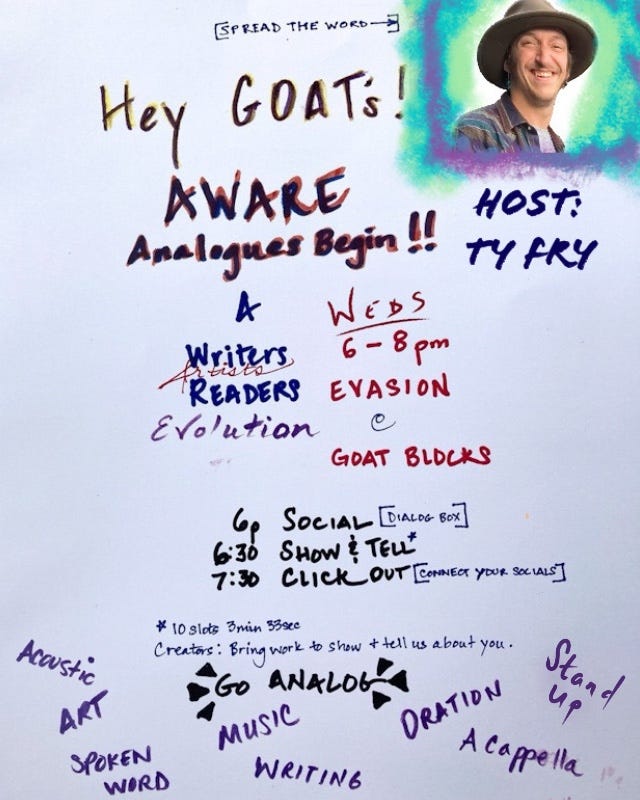 [SPREAD THE WORD→]
Hey GOAT's!
AWARE
Analogues Begin!!
HOST:
TY FRY
A
Writers
Artists
READERS
Evolution
WEDS
6-8pm
EVASION
@
GOAT BLOCKS
6p SOCIAL [DIALOG BOX]
6:30 SHOW & TELL*
7:30 CLICK OUT [CONNECT YOUR SOCIALS]
* 10 slots 3min 33sec
Creators: Bring work to show + tell us about you.
GO ANALOG
Acoustic
ART
SPOKEN
WORD
MUSIC
WRITING
ORATION
A cappella
Stand
Up